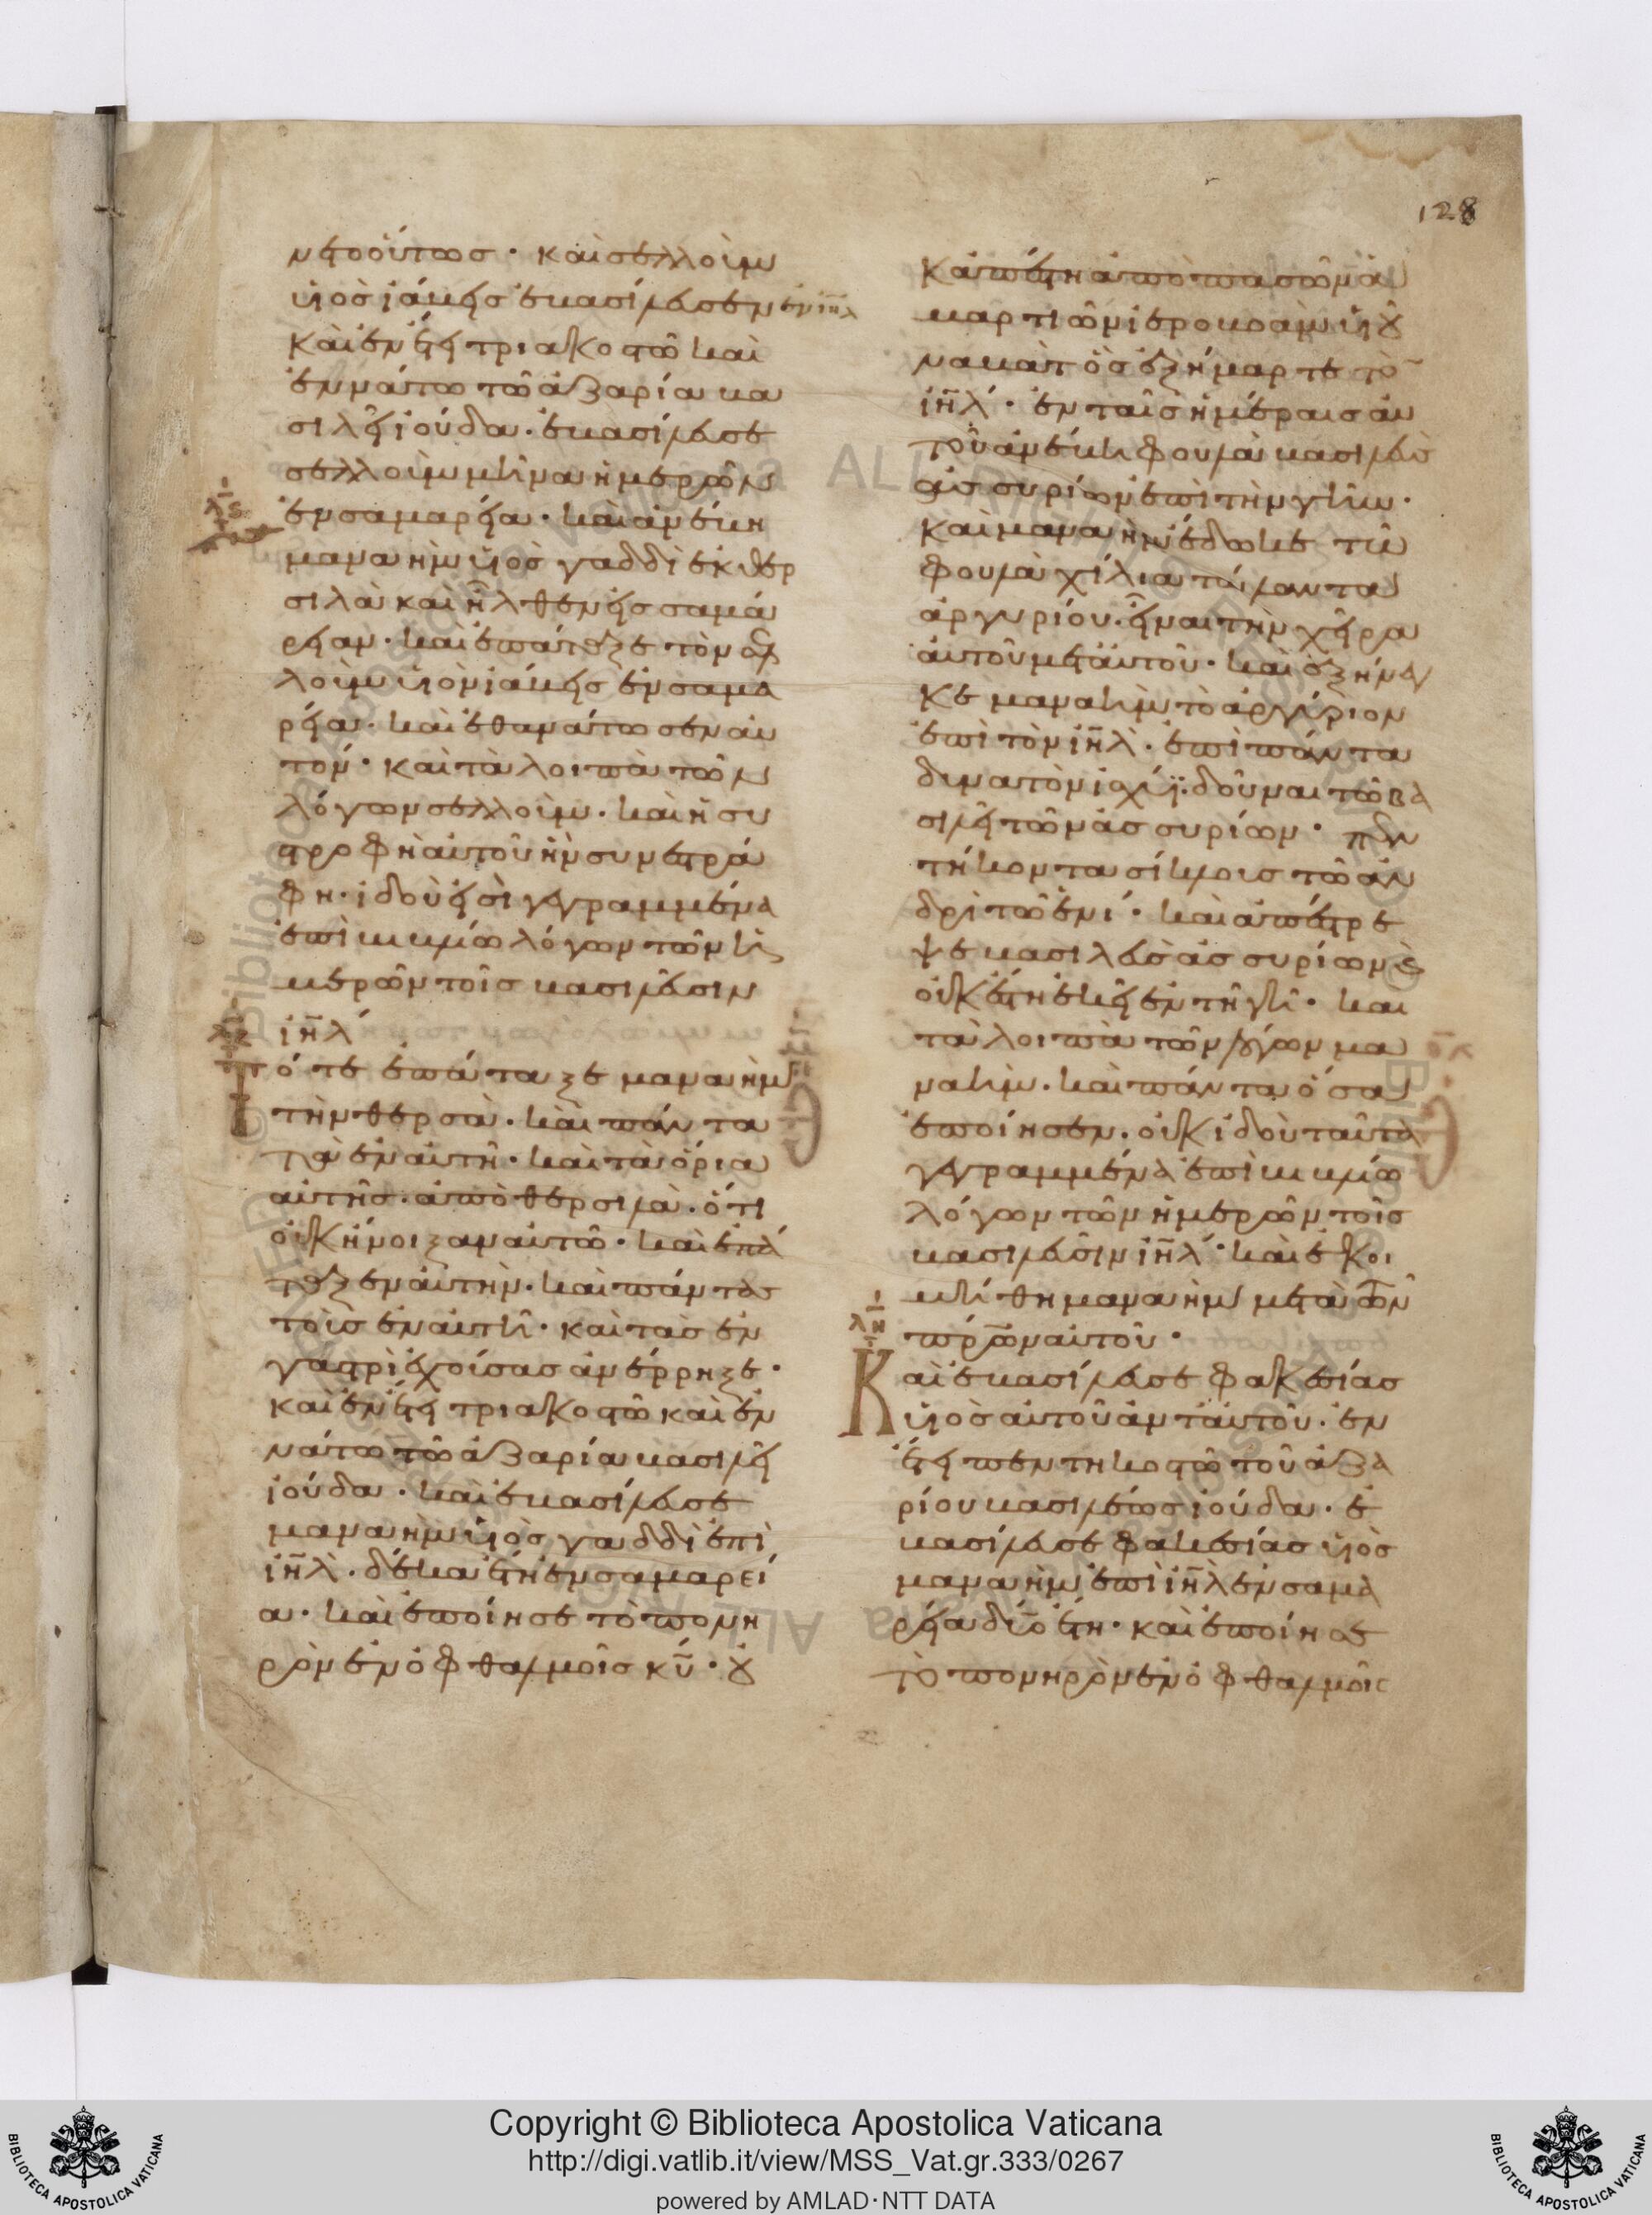 128
νετο οὕτως · καὶ σελλοὶμ
υἱὸς ἰάβεις ἐβασίλευσεν ἐν ιηλ
καὶ ἐν ἔτει τριακοστῶ καὶ
ἐννάτω τῶ ἀζαρία βα
σιλεῖ ἰούδα · ἐβασίλευσε
σελλοὶμ μῆνα ἡμερῶν
ἐν σαμαρεία · καὶ ἀνέβη
μαναὴμ υἱὸς γαδδὶ ἐκ θερ
σιλὰ καὶ ἦλθεν εἰς σαμά
ρειαν · καὶ ἐπάταξε τὸν σελ
λοὶμ υἱὸν ἰάβεις ἐν σαμα
ρεία · καὶ ἐθανάτωσεν αὐ
τόν · καὶ τὰ λοιπὰ τῶν
λόγων σελλοὶμ · καὶ ἡ συ
στροφὴ αὐτοῦ ἣν συνεστρά
φη · ἰδοὺ εἰσὶ γεγραμμένα
ἐπὶ βιβλίω λόγων τῶν ἡ
μερῶν τοῖς βασιλεῦσιν
ιηλ
λζ
Τότε ἐπάταξε μαναὴμ
τὴν θερσὰ · καὶ πάντα
τὰ ἐν αὐτῆ · καὶ τὰ ὅρια
αὐτῆς · ἀπὸ θερσιλὰ · ὅτι
οὐκ ἤνοιξαν αὐτῶ · καὶ ἐπά
ταξεν αὐτὴν · καὶ πάντας
τοὺς ἐν αὐτῆ · καὶ τὰς ἐν
γαστρὶ ἐχούσας ἀνέρρηξε ·
καὶ ἐν ἔτει τριακοστῶ καὶ ἐν
νάτω τῶ ἀζαρία βασιλεῖ
ἰούδα · καὶ ἐβασίλευσε
μαναὴμ υἱὸς γαδδὶ ἐπὶ
ιηλ · δέκα ἔτη ἐν σαμαρεί
α · καὶ ἐποίησε τὸ πονη
ρὸν ἐν ὀφθαλμοῖς κυ · οὐ
κ ἀπέστη ἀπὸ πασῶν ἁ
μαρτιῶν ἱεροβοὰμ υἱοῦ
ναβὰτ ὃς ἐξήμαρτε τὸν
ιηλ · ἐν ταῖς ἡμέραις αὐ
τοῦ ἀνέβη φουλὰ βασιλεὺς
ἀσσυρίων ἐπὶ τὴν γῆν ·
καὶ μαναὴμ ἔδωκε τῶ
φουλὰ χίλια τάλαντα
ἀργυρίου · εἶναι τὴν χεῖρα
αὐτοῦ μετ αὐτοῦ · καὶ ἐξήνεγ
κε μαναὴμ τὸ ἀργύριον
ἐπὶ τὸν ιηλ · ἐπὶ πάντα
δυνατὸν ἰσχύι · δοῦναι τῶ βα
σιλεῖ τῶν ἀσσυρίων · πεν
τήκοντα σίκλους τῶ ἀν
δρὶ τῶ ἑνί · καὶ ἀπέστρε
ψε βασιλεὺς ἀσσυρίων καὶ
οὐκ ἔστη ἐκεῖ ἐν τῆ γῆ · και
τὰ λοιπὰ τῶν λόγων μα
ναὴμ · καὶ πάντα ὅσα
ἐποίησεν · οὐκ ἰδοὺ ταῦτα
γεγραμμένα ἐπὶ βιβλίω
λόγων τῶν ἡμερῶν τοῖς
βασιλεῦσιν ιηλ · καὶ ἐκοι
μήθη μαναὴμ μετὰ τῶν
πρων αὐτοῦ ·
λη
Καὶ ἐβασίλευσε φακεσίας
υἱὸς αὐτοῦ ἀντ αὐτοῦ · ἐν
ἔτει πεντηκοστῶ τοῦ ἀζα
ρίου βασιλέως ἰούδα · ἐ
βασίλευσε φακεσίας υἱὸς
μαναὴμ ἐπὶ ιηλ ἐν σαμα
ρεία δύο ἔτη · καὶ ἐποίησε
τὸ πονηρὸν ἐν ὀφθαλμοῖς
Copyright © Biblioteca Apostolica Vaticana
http://digi.vatlib.it/view/MSS_Vat.gr.333/0267
powered by AMLAD·NTT DATA
BIBLIOTECA APOSTOLICA VATICANA
BIBLIOTECA APOSTOLICA VATICANA